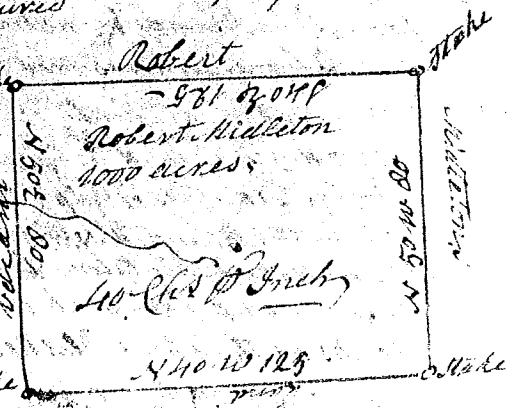 Robert
Stake
S 40 E 125
Robert Midleton
1000 acres
N 50 E 80
N 50 W 80
Vacant
40 Chs P Inch
N 40 W 125
Stake